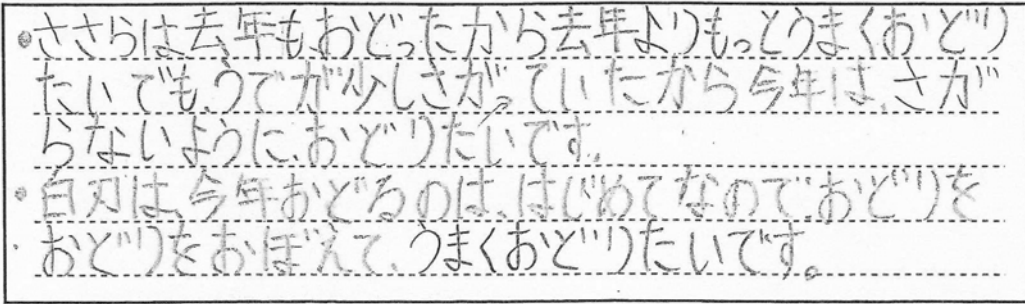 •ささらは、去年も、おどったから去年よりもっとうまくおどり
たいでも、うでが少しさがっていたから今年は、さが
らないように、おどりたいです。
•白刃は、今年おどるのは、はじめてなので、おどりを
おどりをおぼえて、うまくおどりたいです。